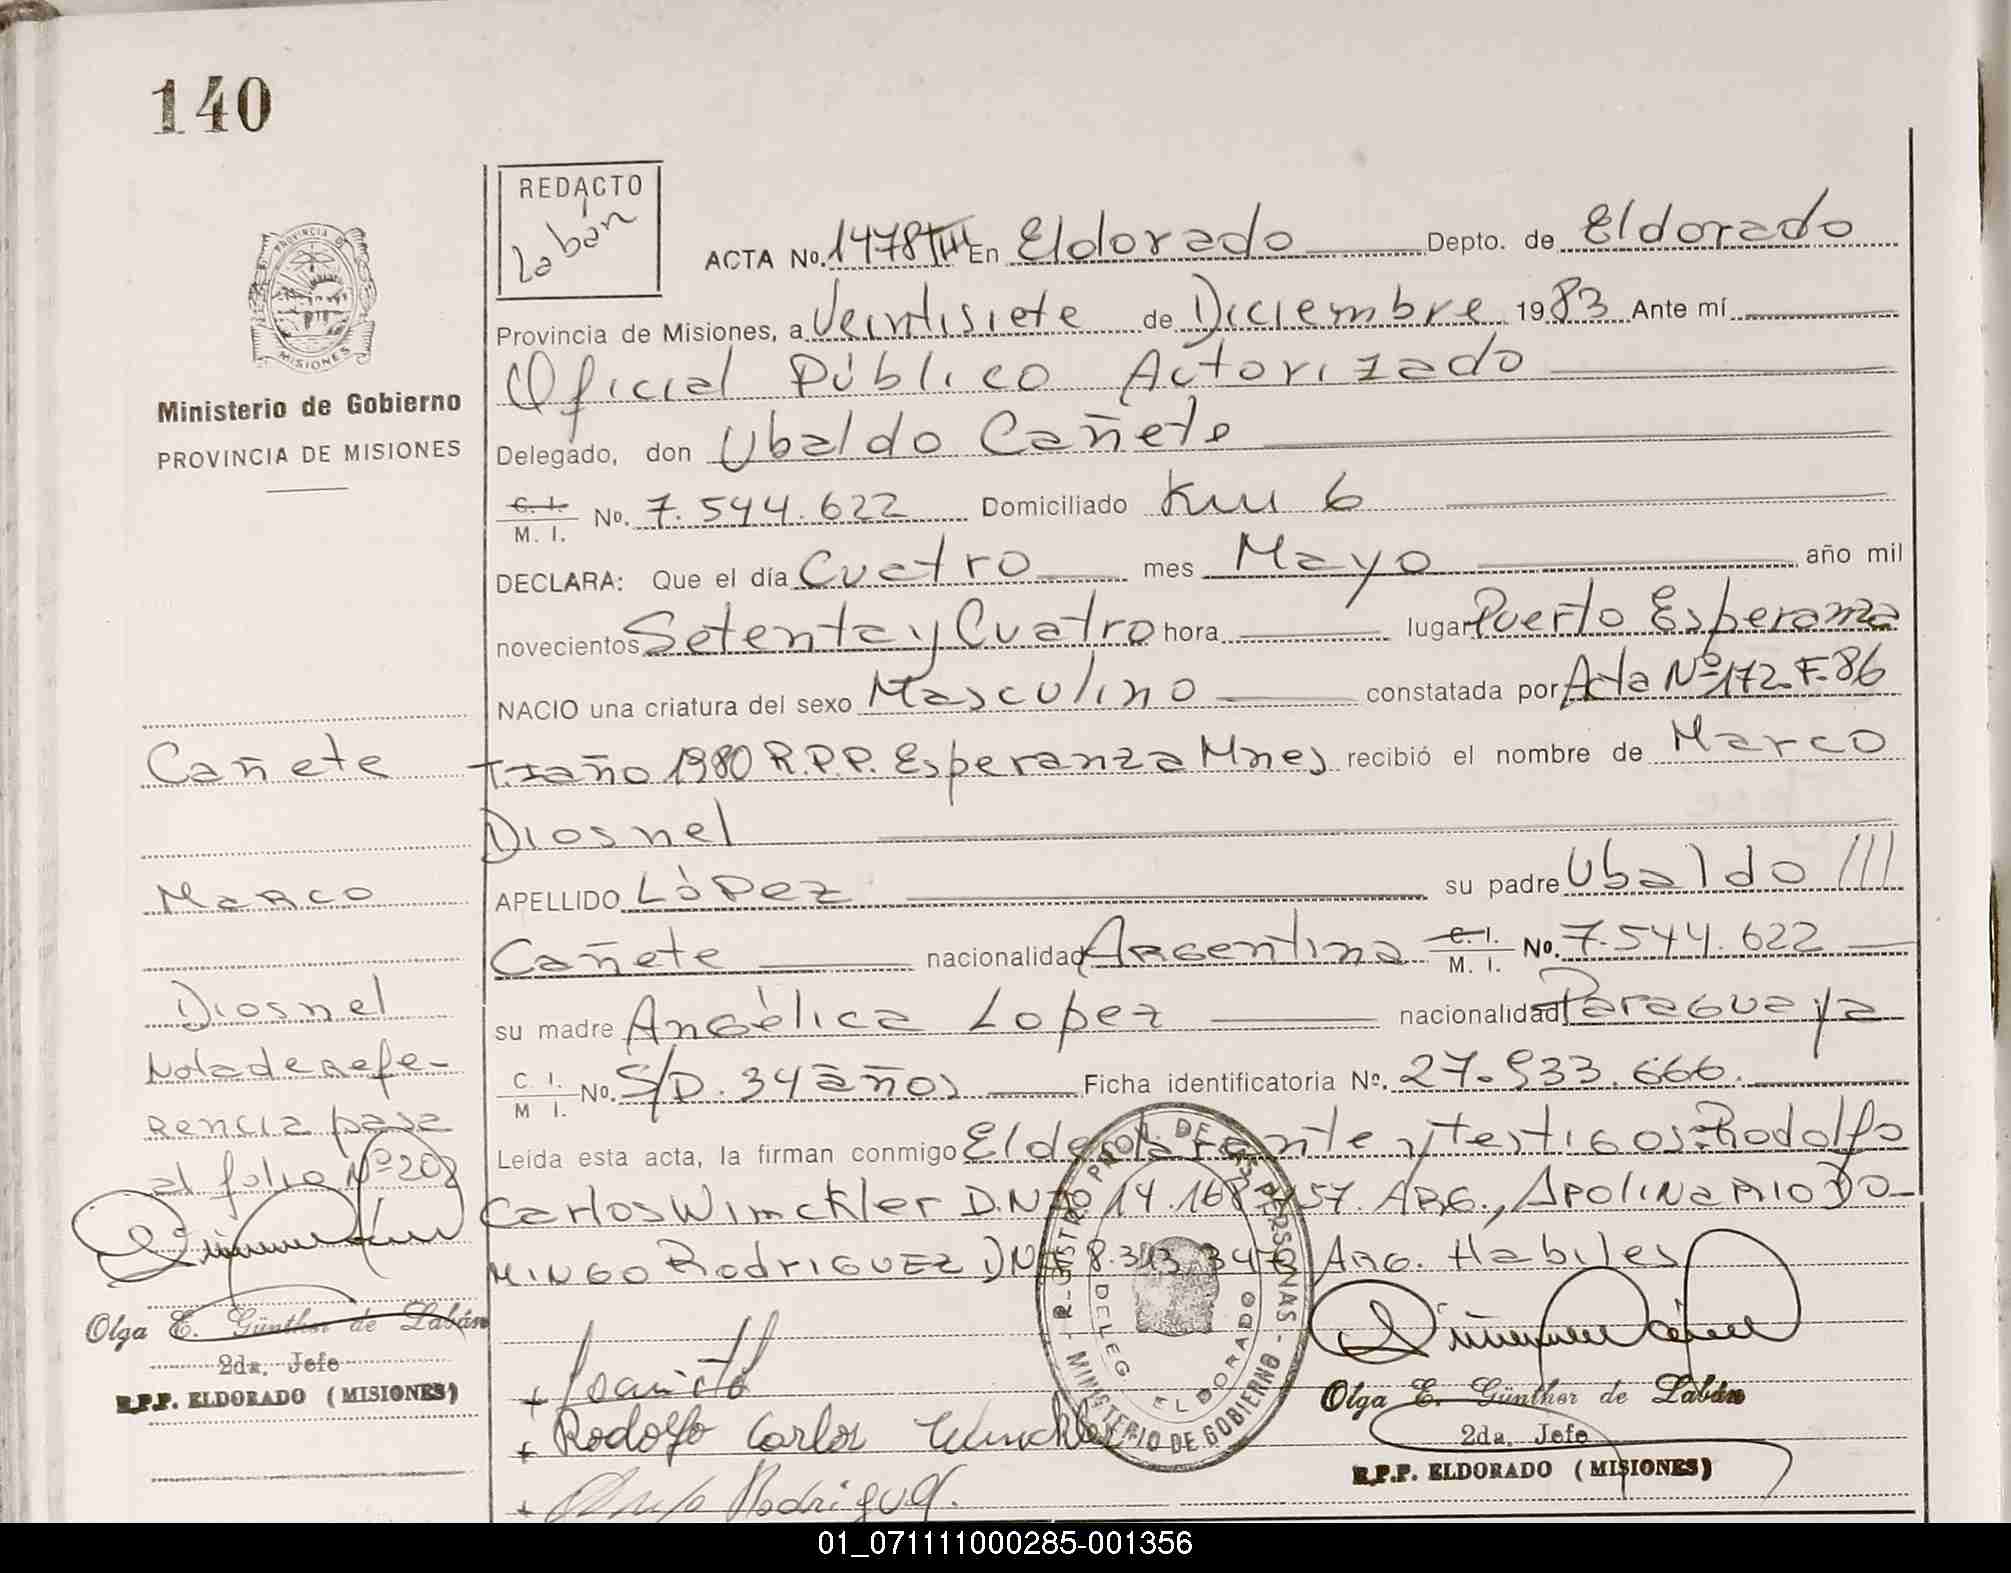 140
REDACTO
Labán
ACTA No. 1478 TIII En Eldorado Depto. de Eldorado
Provincia de Misiones, a Veintisiete de Diciembre 1983 Ante mí
Oficial Público Actorizado
Delegado, don Ubaldo Cañete
C. I. M. I. No. 7.544.622 Domiciliado Km 6
DECLARA: Que el día Cuatro mes Mayo año mil
novecientos Setenta y Cuatro hora lugar Puerto Esperanza
NACIO una criatura del sexo Masculino constatada por Acta Nº 172 F. 86
T. I año 1980 R.P.P. Esperanza Mnes recibió el nombre de Marco
Diosnel
APELLIDO López su padre Ubaldo ///
Cañete nacionalidad Argentina C. I. M. I. No. 7.544.622
su madre Angélica Lopez nacionalidad Paraguaya
C. I. M I. No. S/D. 34 años Ficha identificatoria Nº. 27.533.666.
Leída esta acta, la firman conmigo El declarante y testigos: Rodolfo
Carlos Winckler D.N.I. 14.168.157. ARG., Apolinario Do-
mingo Rodriguez DNI 8.313.347 ARG. Habiles
PROVINCIA DE
MISIONES
Ministerio de Gobierno
PROVINCIA DE MISIONES
Cañete
Marco
Diosnel
Nota de refe-
rencia pasa
al folio Nº 202
Olga E. Günther de Labán
2da. Jefe
R.P.P. ELDORADO (MISIONES)
+ Rodolfo Carlos Winckler
+ Rodriguez.
REGISTRO PROV. DE LAS PERSONAS - MINISTERIO DE GOBIERNO -
DELEG ELDORADO
Olga E. Günther de Labán
2da. Jefe
R.P.P. ELDORADO (MISIONES)
01_071111000285-001356